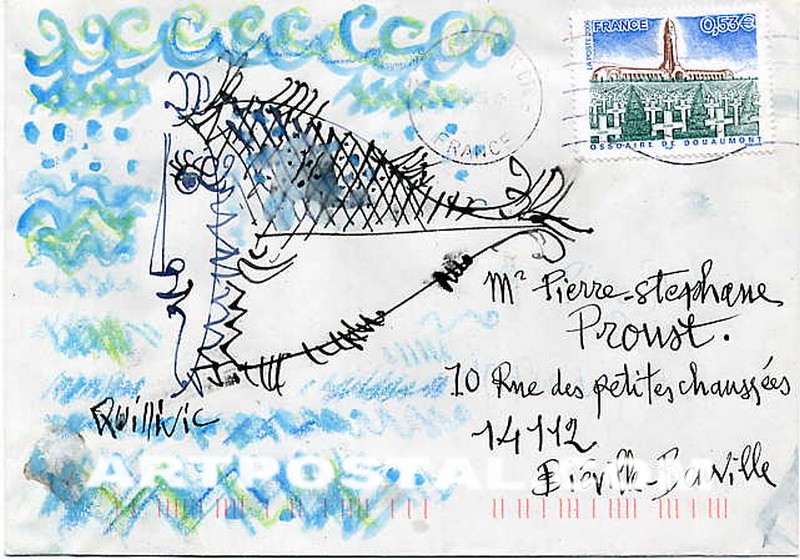 FRANCE 0,53€
LA POSTE 2006
OSSUAIRE DE DOUAUMONT
FRANCE
Mr Pierre-stephane
Proust.
10 Rue des petites chaussées
14112
Biéville-Beuville
Quillivic
ARTPOSTAL.COM